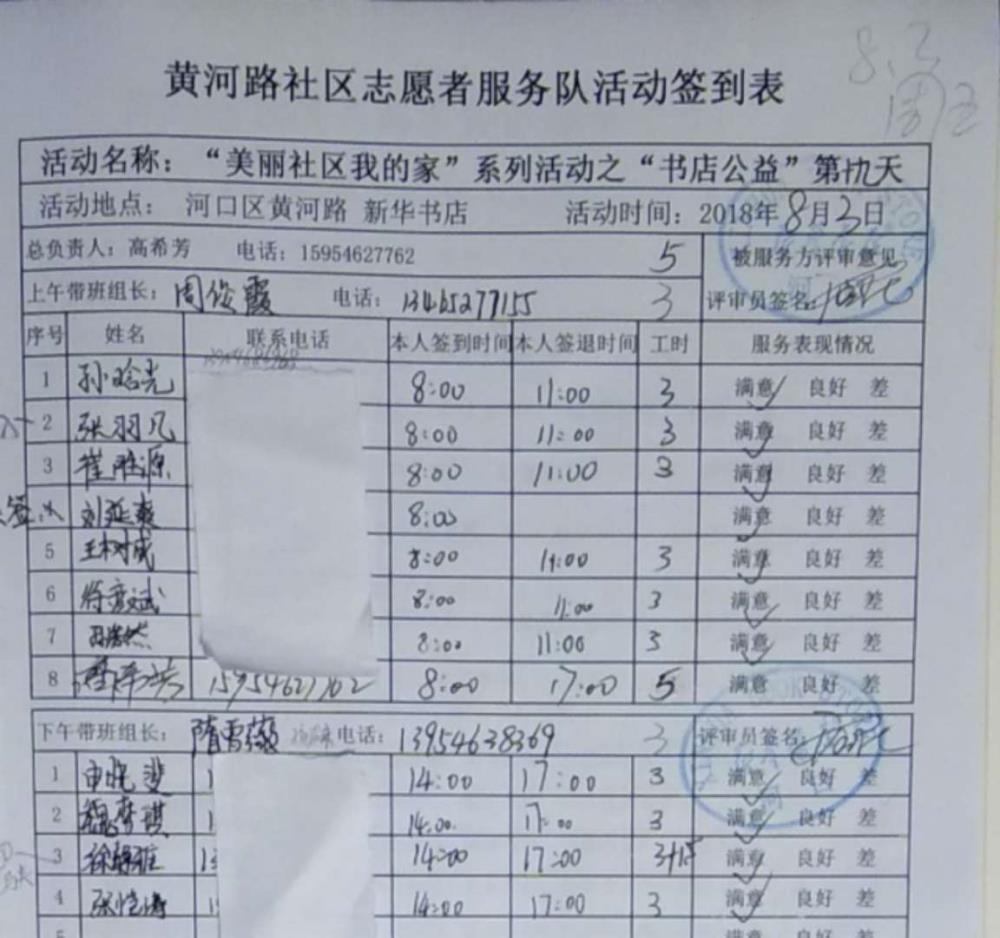 8.3
周五
黄河路社区志愿者服务队活动签到表
活动名称：“美丽社区我的家”系列活动之“书店公益”第十九天
活动地点： 河口区黄河路 新华书店 活动时间：2018年8月3日
总负责人：高希芳 电话：15954627762 5 被服务方评审意见
上午带班组长：周俊霞 电话：13465277155 3 评审员签名：
序号 姓名 联系电话 本人签到时间 本人签退时间 工时 服务表现情况
1 孙晗光 8:00 11:00 3 满意✓ 良好 差
2 张羽凡 8:00 11:00 3 满意✓ 良好 差
3 崔胜源 8:00 11:00 3 满意✓ 良好 差
刘延爽 8:00 满意✓ 良好 差
5 王树成 8:00 11:00 3 满意✓ 良好 差
6 8:00 11:00 3 满意✓ 良好 差
7 8:00 11:00 3 满意✓ 良好 差
8 15954627762 8:00 17:00 5 满意 良好 差
下午带班组长： 隋雪薇 电话：13954638369 3 评审员签名：
1 申晓斐 1 14:00 17:00 3 满意✓ 良好 差
2 魏梦琪 1 14:00 17:00 3 满意✓ 良好 差
3 13 14:00 17:00 满意✓ 良好 差
4 张恺涛 1 14:00 17:00 3 满意✓ 良好 差
5 满意 良好 差